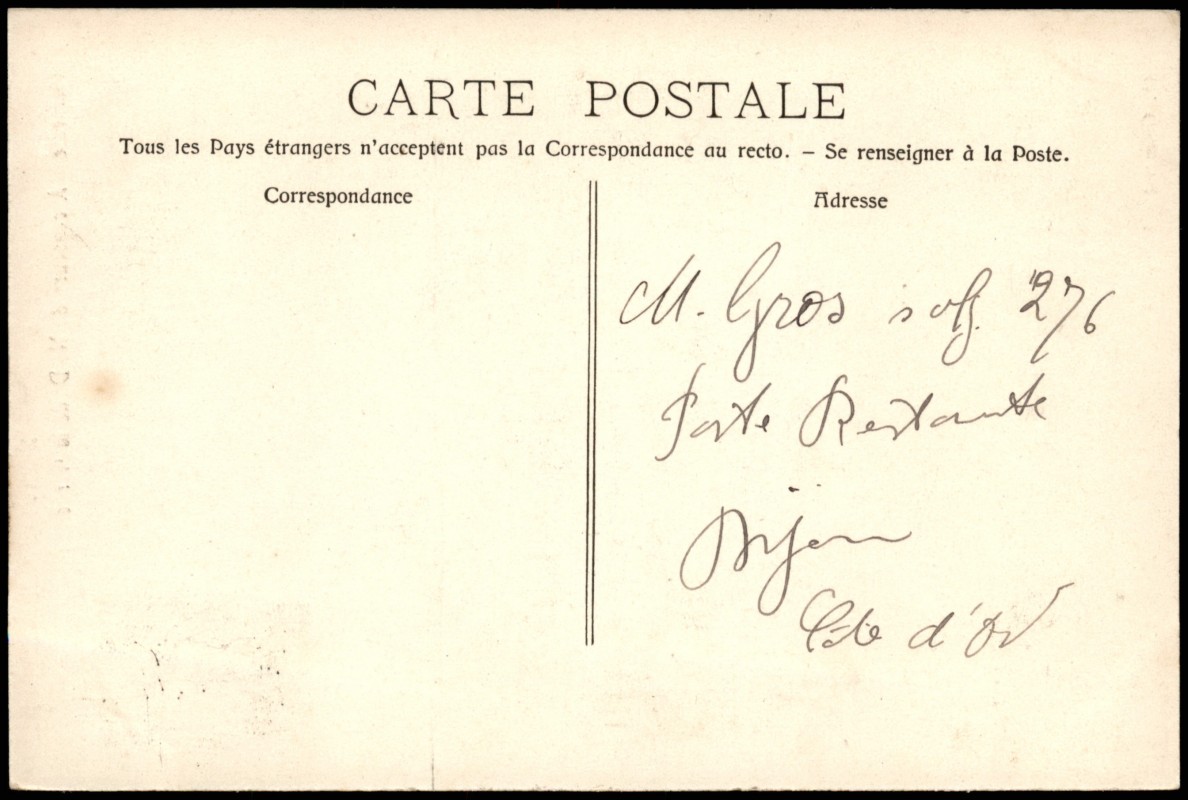 CARTE POSTALE
Tous les Pays étrangers n'acceptent pas la Correspondance au recto. – Se renseigner à la Poste.
Correspondance
Adresse
M. Gros 276
Poste Restante
Dijon
Côte d'Or